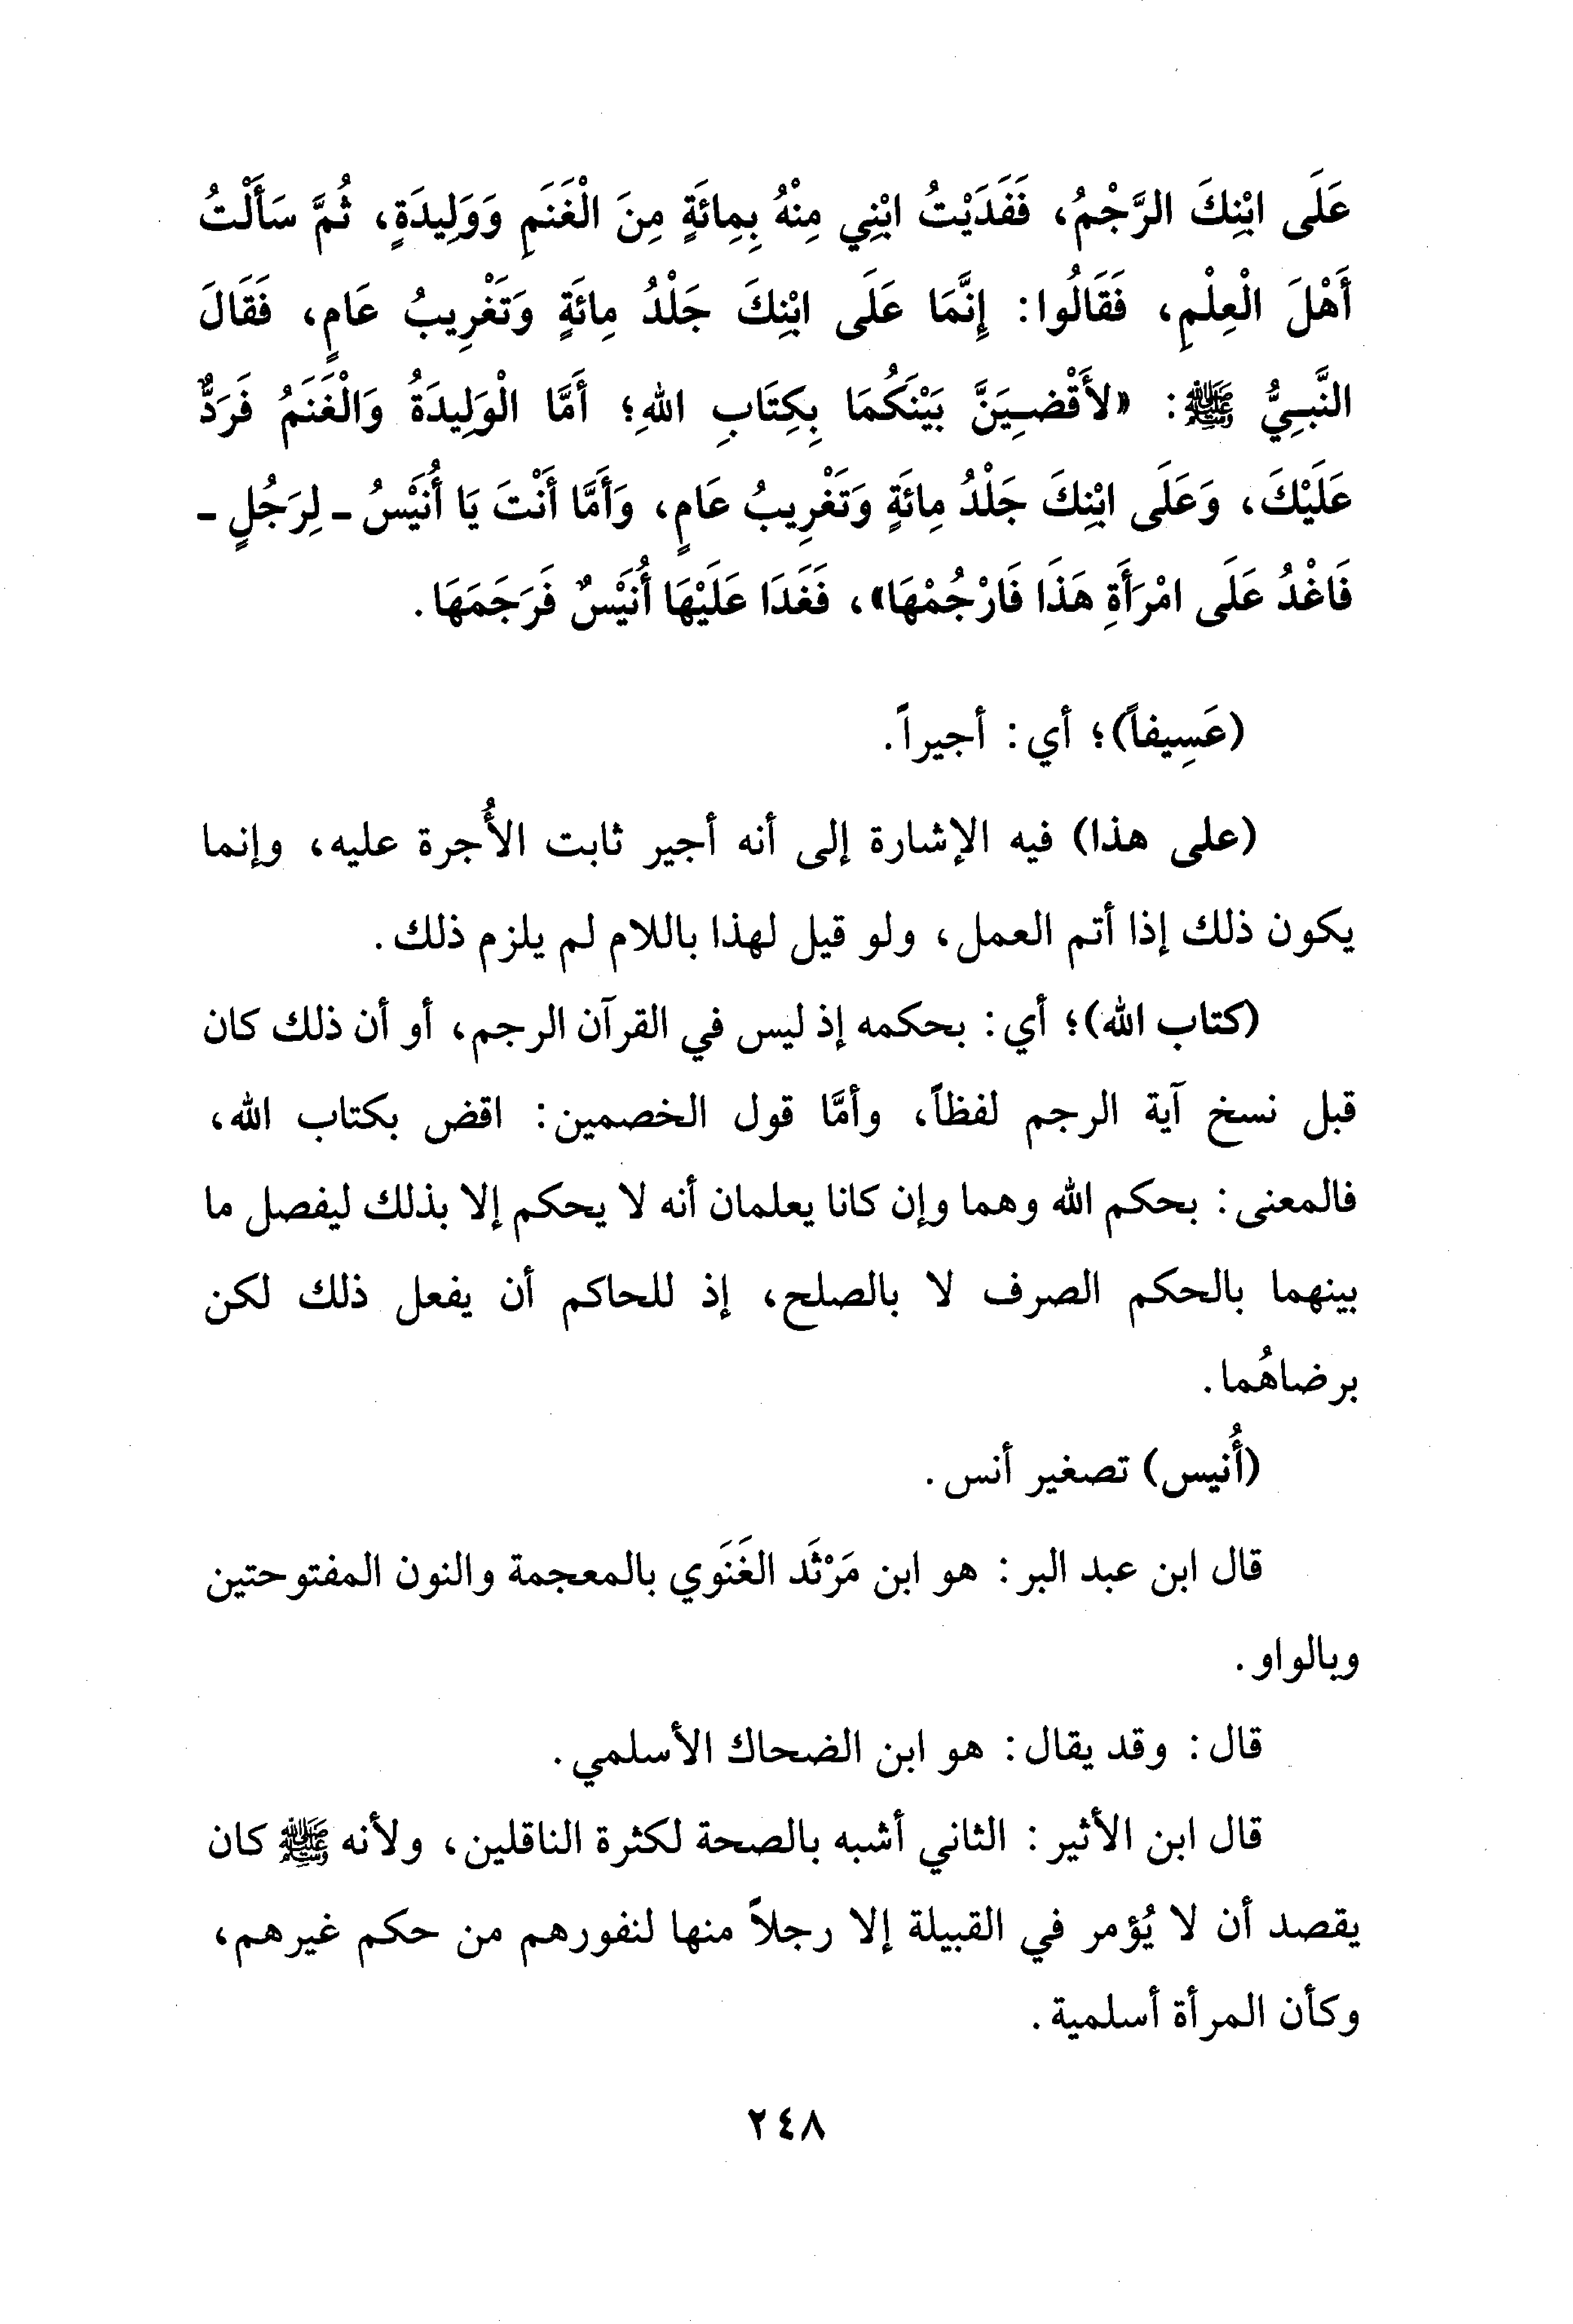 عَلَى ابْنِكَ الرَّجْمُ، فَفَدَيْتُ ابْنِي مِنْهُ بِمِائَةٍ مِنَ الْغَنَمِ وَوَلِيدَةٍ، ثُمَّ سَأَلْتُ
أَهْلَ الْعِلْمِ، فَقَالُوا: إِنَّمَا عَلَى ابْنِكَ جَلْدُ مِائَةٍ وَتَغْرِيبُ عَامٍ، فَقَالَ
النَّبِيُّ ﷺ: «لأَقْضِيَنَّ بَيْنَكُمَا بِكِتَابِ اللهِ؛ أَمَّا الْوَلِيدَةُ وَالْغَنَمُ فَرَدٌّ
عَلَيْكَ، وَعَلَى ابْنِكَ جَلْدُ مِائَةٍ وَتَغْرِيبُ عَامٍ، وَأَمَّا أَنْتَ يَا أُنَيْسُ ـ لِرَجُلٍ ـ
فَاغْدُ عَلَى امْرَأَةِ هَذَا فَارْجُمْهَا»، فَغَدَا عَلَيْهَا أُنَيْسٌ فَرَجَمَهَا.
(عَسِيفاً)؛ أي: أجيراً.
(على هذا) فيه الإشارة إلى أنه أجير ثابت الأُجرة عليه، وإنما
يكون ذلك إذا أتم العمل، ولو قيل لهذا باللام لم يلزم ذلك.
(كتاب الله)؛ أي: بحكمه إذ ليس في القرآن الرجم، أو أن ذلك كان
قبل نسخ آية الرجم لفظاً، وأمَّا قول الخصمين: اقض بكتاب الله،
فالمعنى: بحكم الله وهما وإن كانا يعلمان أنه لا يحكم إلا بذلك ليفصل ما
بينهما بالحكم الصرف لا بالصلح، إذ للحاكم أن يفعل ذلك لكن
برضاهُما.
(أُنيس) تصغير أنس.
قال ابن عبد البر: هو ابن مَرْثَد الغَنَوي بالمعجمة والنون المفتوحتين
وبالواو.
قال: وقد يقال: هو ابن الضحاك الأسلمي.
قال ابن الأثير: الثاني أشبه بالصحة لكثرة الناقلين، ولأنه ﷺ كان
يقصد أن لا يُؤمر في القبيلة إلا رجلاً منها لنفورهم من حكم غيرهم،
وكأن المرأة أسلمية.
٢٤٨